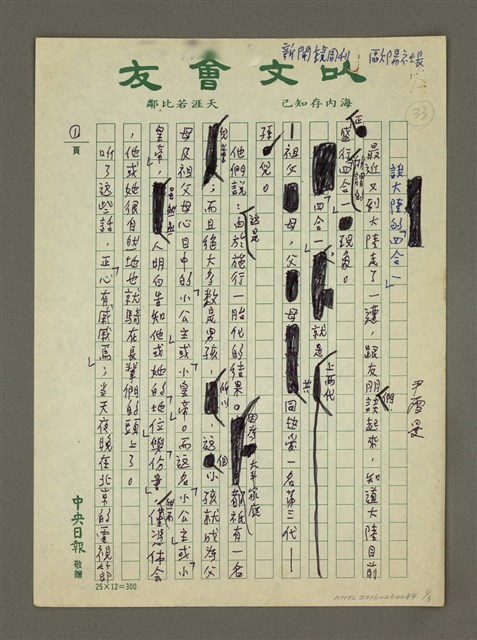 新聞鏡周刊 歐陽社長
以文會友
海內存知己 天涯若比鄰
33
談大陸的「四合一」
尹雪曼
最近又到大陸走了一趟,跟友朋們談起來,知道大陸目前
正盛行所謂的「四合一」現象。
「四合一」,就是上兩代
—祖父母,父母共同熱愛一名第三代—
孫兒。
他們說:這是由於施行一胎化的結果。因為大半家庭都祇有一名
兒輩;而且絕大多數是男孩,所以,這個小孩就成為父
母及祖父母心目中的「小公主」或「小皇帝」。而這名「小公主」或「小
皇帝」,雖然無人明白告知他或她的地位與份量,但僅憑體會
,他或她很自然地也就騎在長輩們的頭上了。
聽了這些話,正心有「戚戚焉」;當天夜晚在北京的電視節
①
頁
中央日報 敬贈
25×12=300
1/3